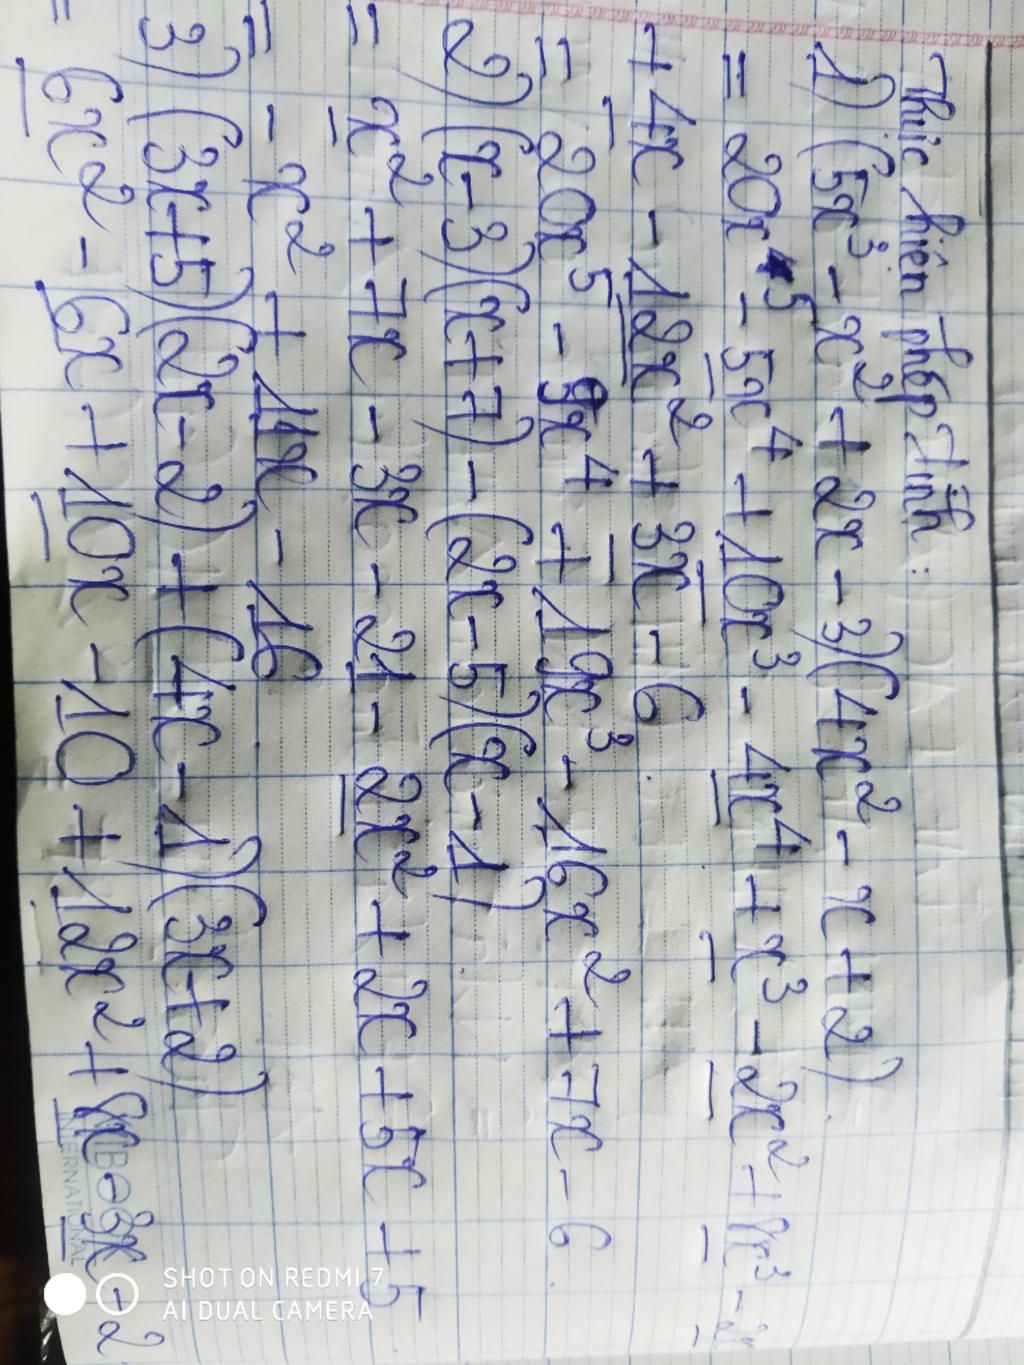 Thực hiện phép tính:
1) (5x³ - x² + 2x - 3)(4x² - x + 2)
= 20x⁵ - 5x⁴ + 10x³ - 4x⁴ + x³ - 2x² + 8x³ - 2x
+ 4x - 12x² + 3x - 6
= 20x⁵ - 9x⁴ + 19x³ - 16x² + 7x - 6
2) (x - 3)(x + 7) - (2x - 5)(x - 1)
= x² + 7x - 3x - 21 - 2x² + 2x + 5x + 5
= - x² + 11x - 16
3) (3x + 5)(2x - 2) + (4x - 1)(3x + 2)
= 6x² - 6x + 10x - 10 + 12x² + 8x - 3x - 2
INTERNATIONAL
SHOT ON REDMI 7
AI DUAL CAMERA